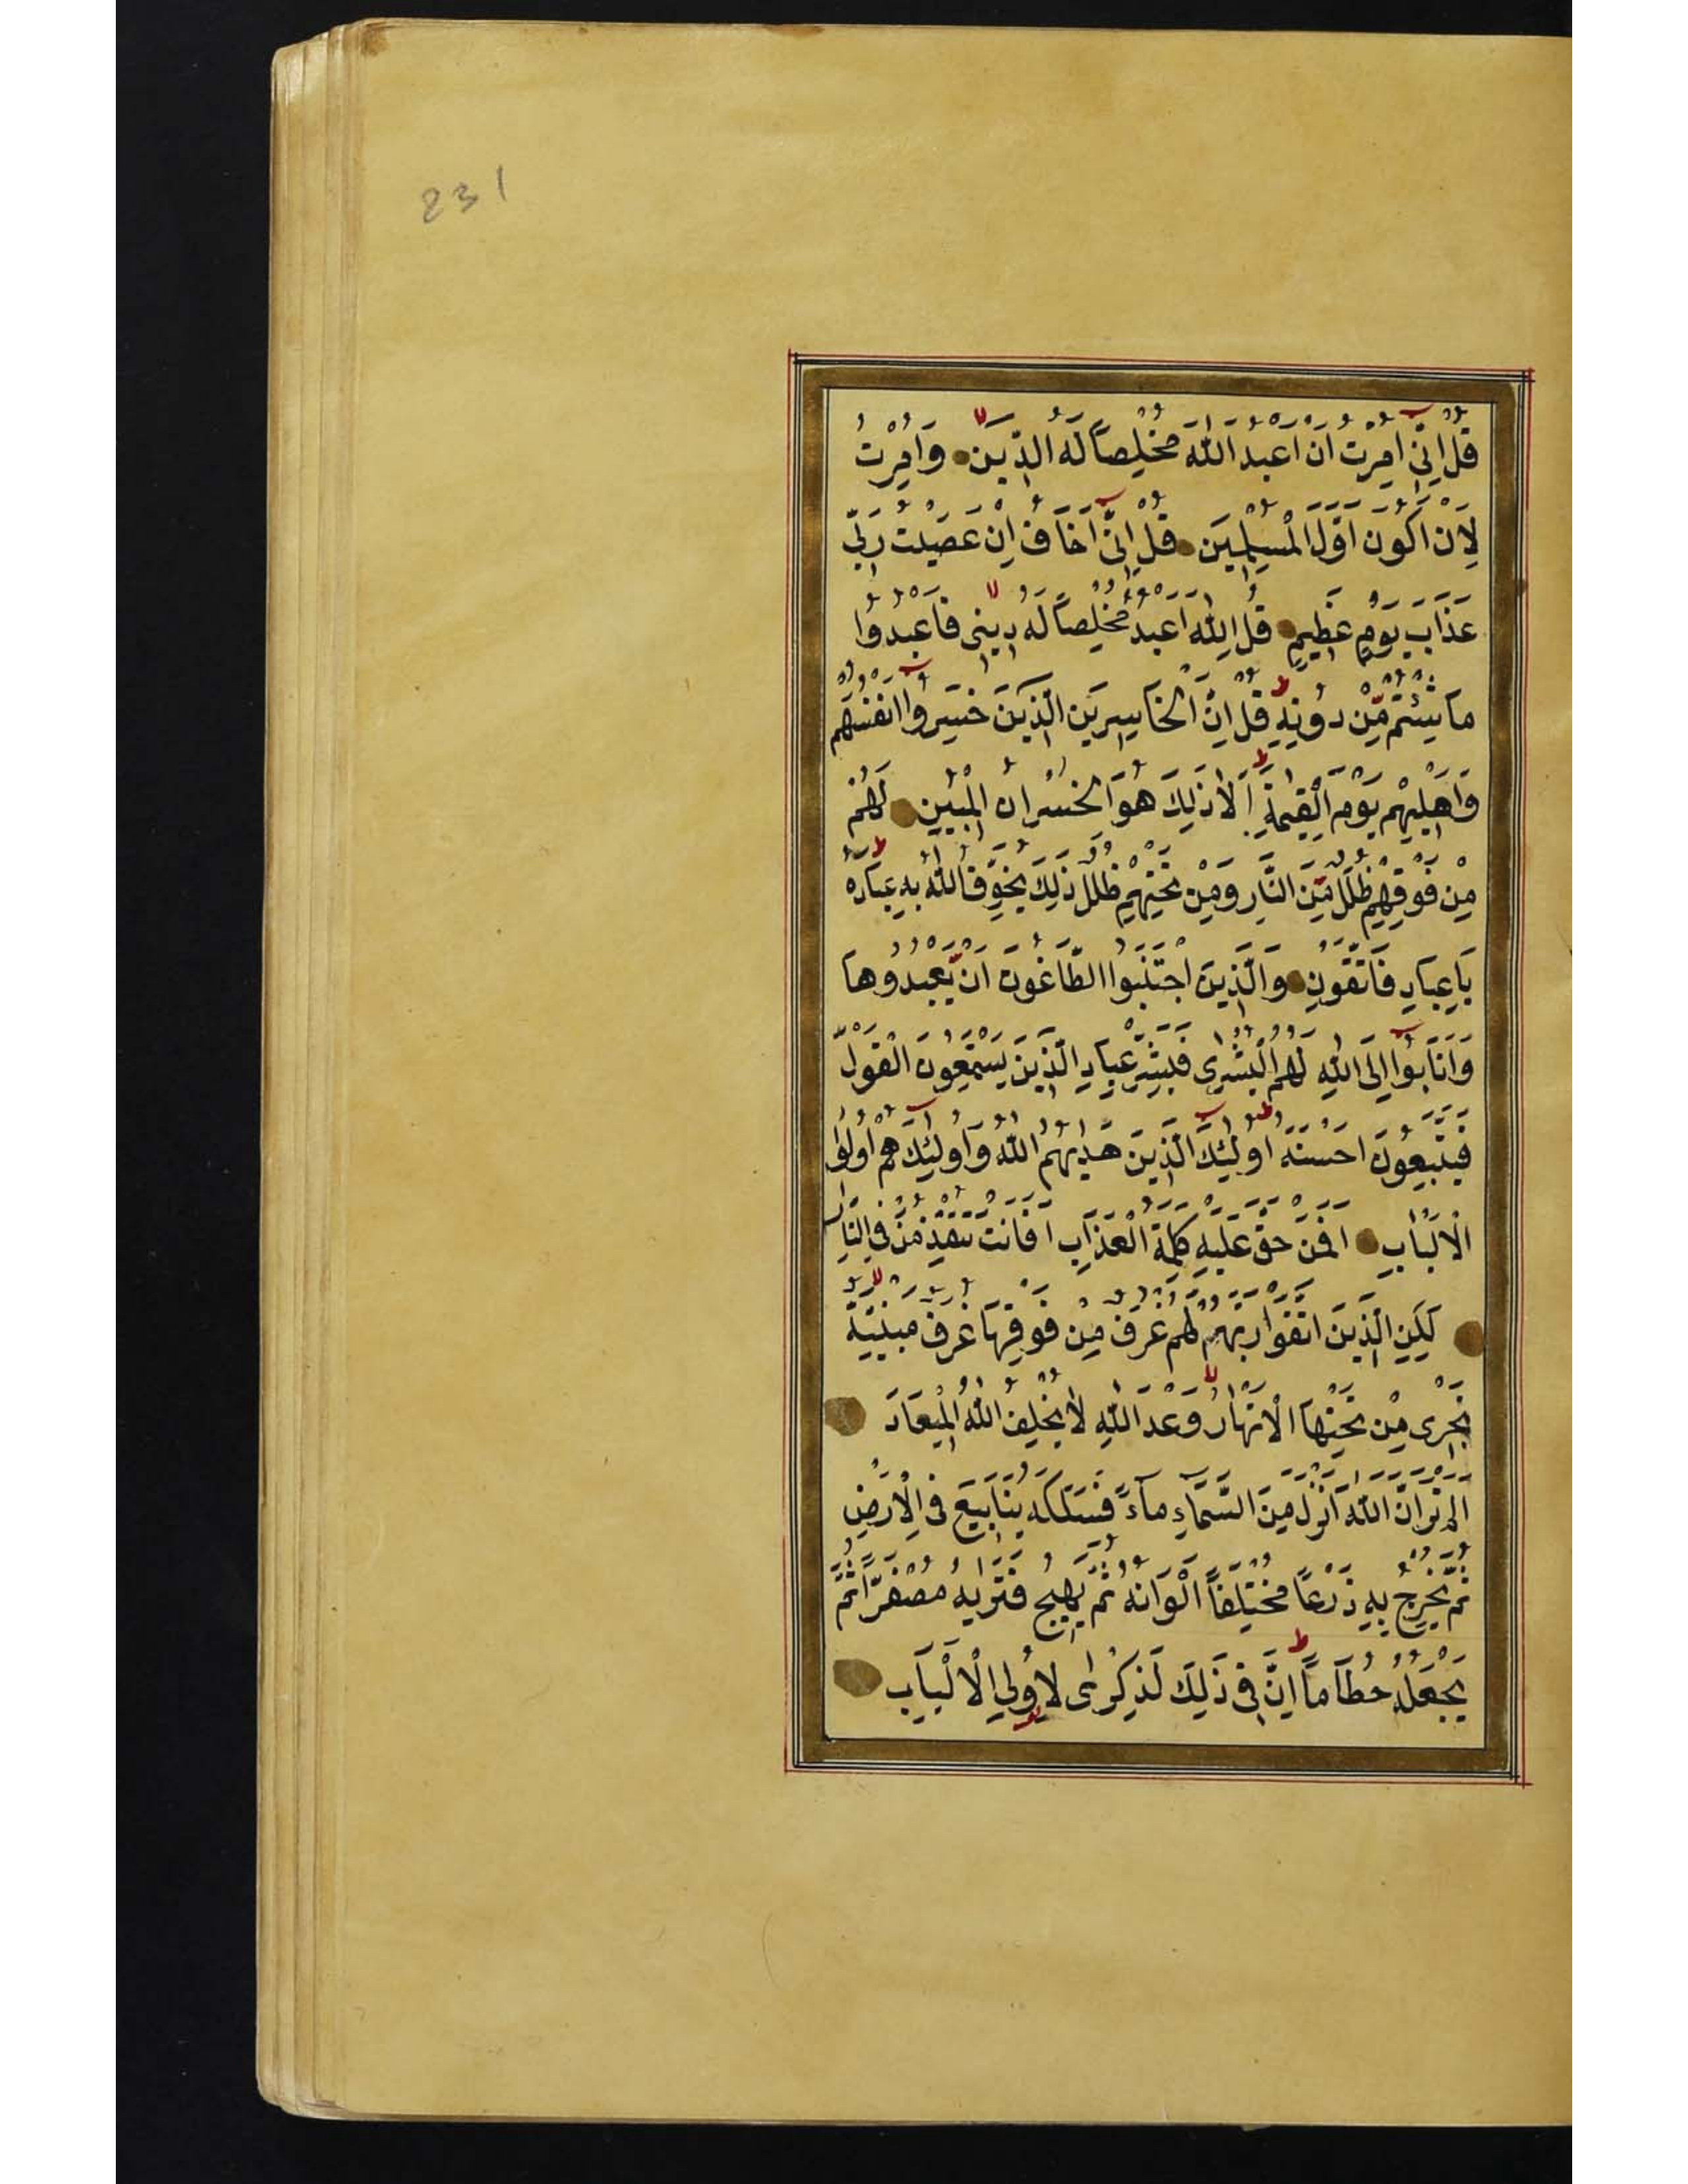 231
قُلْ اِنّٖى اُمِرْتُ اَنْ اَعْبُدَ اللّٰهَ مُخْلِصًا لَهُ الدّٖينَ وَاُمِرْتُ
لِاَنْ اَكُونَ اَوَّلَ الْمُسْلِمٖينَ قُلْ اِنّٖى اَخَافُ اِنْ عَصَيْتُ رَبّٖى
عَذَابَ يَوْمٍ عَظٖيمٍ قُلِ اللّٰهَ اَعْبُدُ مُخْلِصًا لَهُ دٖينٖى فَاعْبُدُوا
مَا شِئْتُمْ مِنْ دُونِهٖ قُلْ اِنَّ الْخَاسِرٖينَ الَّذٖينَ خَسِرُوا اَنْفُسَهُمْ
وَاَهْلٖيهِمْ يَوْمَ الْقِيٰمَةِ اَلَا ذٰلِكَ هُوَ الْخُسْرَانُ الْمُبٖينُ لَهُمْ
مِنْ فَوْقِهِمْ ظُلَلٌ مِنَ النَّارِ وَمِنْ تَحْتِهِمْ ظُلَلٌ ذٰلِكَ يُخَوِّفُ اللّٰهُ بِهٖ عِبَادَهُ
يَا عِبَادِ فَاتَّقُونِ وَالَّذٖينَ اجْتَنَبُوا الطَّاغُوتَ اَنْ يَعْبُدُوهَا
وَاَنَابُوا اِلَى اللّٰهِ لَهُمُ الْبُشْرٰى فَبَشِّرْ عِبَادِ الَّذٖينَ يَسْتَمِعُونَ الْقَوْلَ
فَيَتَّبِعُونَ اَحْسَنَهُ اُولٰئِكَ الَّذٖينَ هَدٰيهُمُ اللّٰهُ وَاُولٰئِكَ هُمْ اُولُوا
الْاَلْبَابِ اَفَمَنْ حَقَّ عَلَيْهِ كَلِمَةُ الْعَذَابِ اَفَاَنْتَ تُنْقِذُ مَنْ فِى النَّارِ
لٰكِنِ الَّذٖينَ اتَّقَوْا رَبَّهُمْ لَهُمْ غُرَفٌ مِنْ فَوْقِهَا غُرَفٌ مَبْنِيَّةٌ
تَجْرٖى مِنْ تَحْتِهَا الْاَنْهَارُ وَعْدَ اللّٰهِ لَا يُخْلِفُ اللّٰهُ الْمٖيعَادَ
اَلَمْ تَرَ اَنَّ اللّٰهَ اَنْزَلَ مِنَ السَّمَاءِ مَاءً فَسَلَكَهُ يَنَابٖيعَ فِى الْاَرْضِ
ثُمَّ يُخْرِجُ بِهٖ زَرْعًا مُخْتَلِفًا اَلْوَانُهُ ثُمَّ يَهٖيجُ فَتَرٰيهُ مُصْفَرًّا ثُمَّ
يَجْعَلُهُ حُطَامًا اِنَّ فٖى ذٰلِكَ لَذِكْرٰى لِاُولِى الْاَلْبَابِ